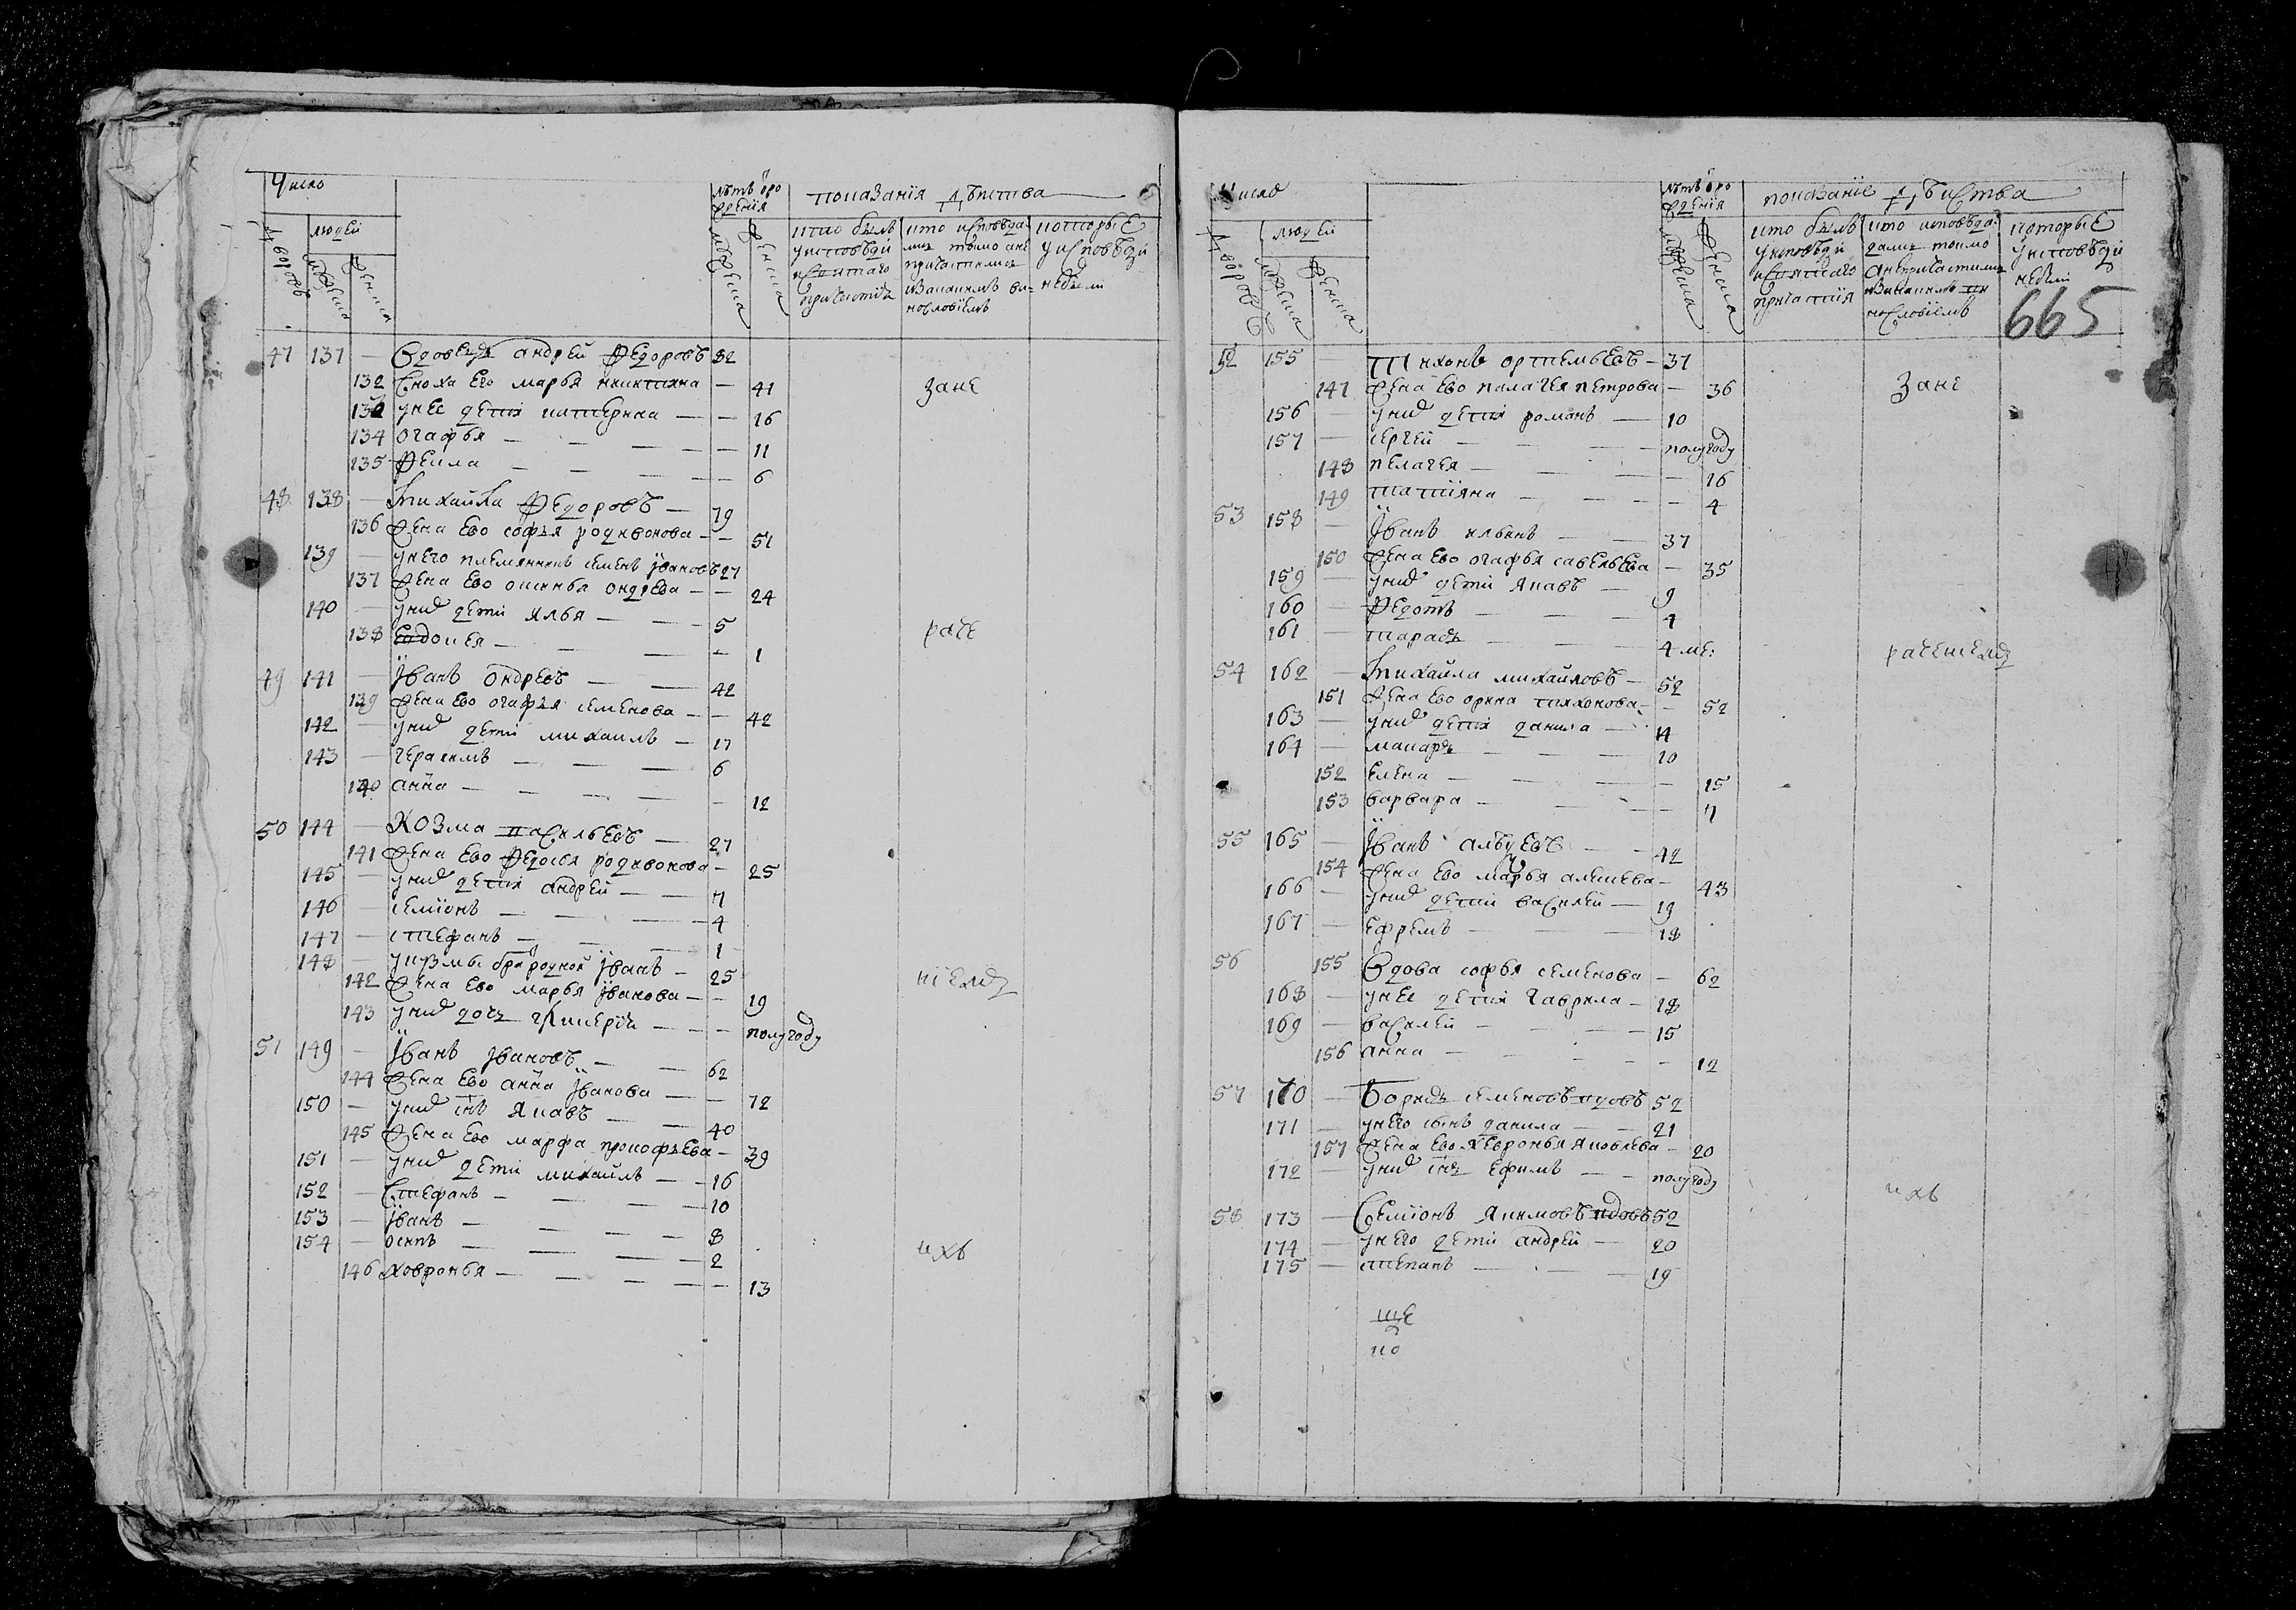 Число
Лѣтъ о͡тро
жденія
показанія дѣиства
дворовъ
людеи
мужеска
женска
мужеска
женска
кто былъ
у исповѣди
и святаго
причастия
кто исповѣда
лис токмо а не
причастилис
и заканимъ ви
нословіемъ
которые
у исповѣди
не были
47 137 — вдовецъ андреи Федоровъ 32
132 сноха Его марья никитина — 41
133 у нее дети катерина — — 16
134 огафья — — — 11
135 Фекла — — — 6
зане
48 138 — михаила Федоровъ — 79
136 жена Ево софья родивонова — — 51
139 — у него племянникъ семенъ Ивановъ 27
137 жена Ево оксинья ондрева — — 24
140 — у них дети илья — — 5
138 Евдокея — — — 1
49 141 — Иванъ ондревъ — — 42
139 жена Ево огафья семенова — — 42
142 — у них дети михаилъ — 17
143 — герасимъ — — — 6
140 анна — — — — 12
50 144 — козма васильевъ — 27
141 жена Ево Федосья родивонова — 25
145 — у них дети андреи — — 7
146 — семионъ — — — 4
147 — стефанъ — — — 1
148 — у кузмы бра родной Иванъ — 25
142 жена Ево марья Иванова — — 19
143 у них доч — — — полугоду
51 149 — Иванъ Ивановъ — — 62
144 жена Ево анна Иванова — — 72
150 — у них сн҃ъ яковъ — — 40
145 жена Ево марфа прокофьева — 39
151 — у них дети михаилъ — — 16
152 — Стефанъ — — — 10
153 — Иванъ — — — 8
154 — осипъ — — — 2
146 ховронья — — — 13
Число
Лѣтъ о͡тро
жденія
показаніе дѣиства
дворовъ
людеи
мужеска
женска
мужеска
женска
кто былъ
у исповѣди
и святаго
причастия
кто исповѣда
далис токмо
а не причастилис
и заканимъ ви
нословіемъ
которые
у исповѣди
не были
665
52 155 Тихонъ ортемьевъ — 37
147 жена Ево палагея петрова — 36
зане
156 — у них дети романъ — 10
157 — сергеи — — полугоду
148 пелагея — — — 16
149 татияна — — — 4
53 158 — Иванъ ильинъ — — 37
150 жена Ево огафья савельева — 35
159 — у них дети яковъ — 9
160 — Федотъ — — — 4
161 — тарасъ — — — 4 ме:
54 162 — михаила михаиловъ — 52
151 жена Ево орина тихонова — — 52
163 — у них дети данила — 14
164 — макаръ — — — 10
152 Елена — — — 15
153 варвара — — — 7
55 165 — Иванъ — — 42
154 жена Ево марья алексева — 43
166 — у них дети василеи — 19
167 — Ефремъ — — 18
56 155 вдова софья семенова — 62
168 — у нее дети гаврила — 18
169 — василеи — — — 15
156 анна — — — — 12
57 170 — Борисъ семеновъ вдовъ 52
171 — у него сынъ данила — — 21
157 жена Ево хевронья яковлева — 20
172 — у них сн҃ъ Ефимъ — — полугоду
58 173 — Семионъ якимовъ вдовъ 52
174 — у него дети андреи — 20
175 — степанъ — — — 19